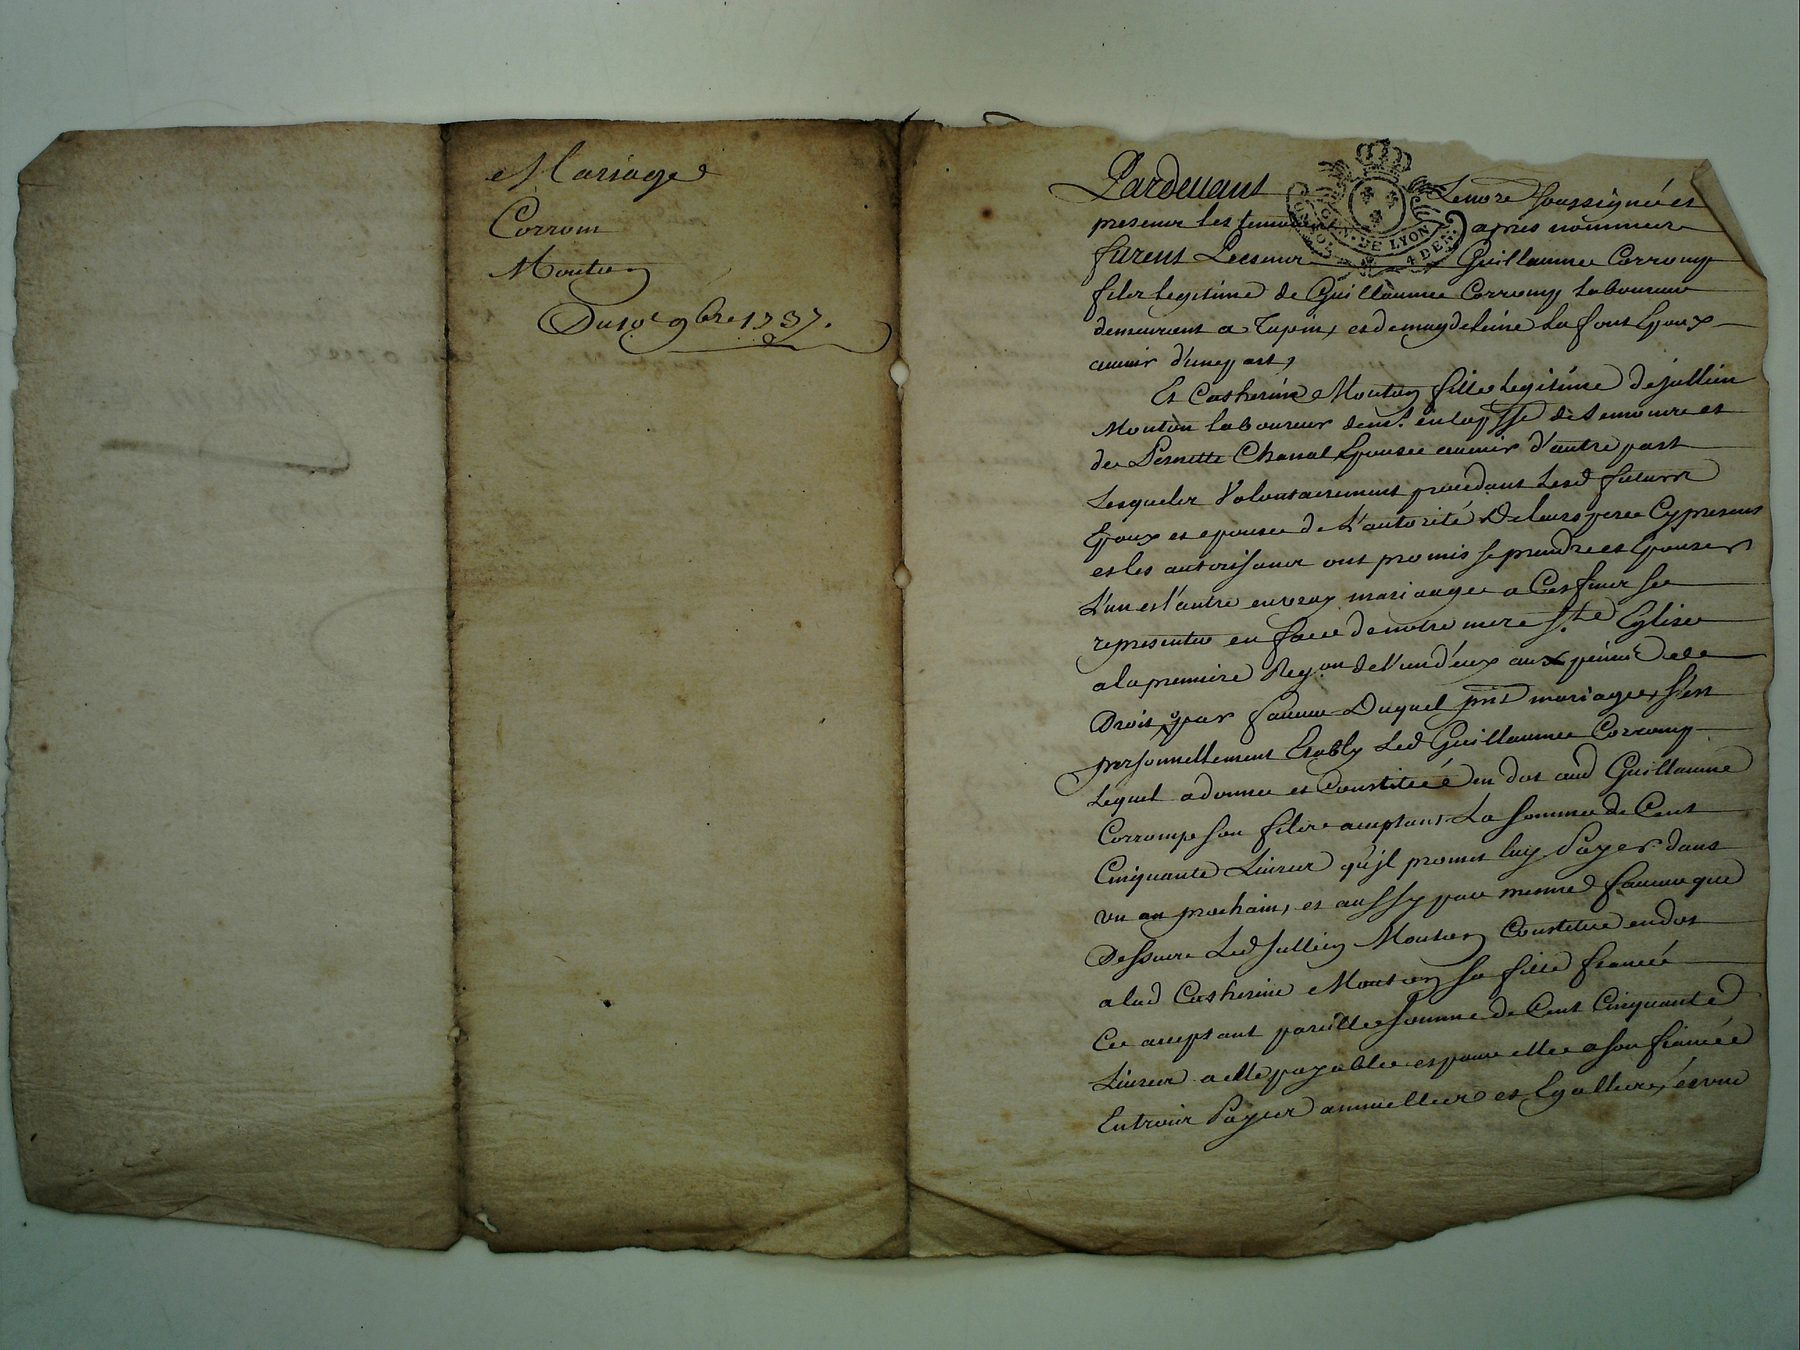 Mariage
Corrom
Mouton
Du 10e 9bre 1737.
Pardevant Le nore soussigné et
presence les temoins apres nommes
GEN. DE LYON 4 DEN.
furent Presens Guillaume Corromp
fils legitime de Guillaume Corromp Laboureur
demeurant a Tupin, et de magdeleine La font Epoux
avenir d'une part,
Et Catherine Mouton fille legitime de jullien
Mouton laboureur demt. en la psse de Semons et
de Pernette Chanal Epouse avenir d'autre part
Lesquels Volontairement procedant Lesd futurs
Epoux et epouse de L'autorité De leurs peres Cy presens
et les autorisans ont promis se prendre et Epouser
L'un et l'autre en vray mariange a Ces fins se
representer en face de notre mere Ste Eglise
a la premiere Reqon de l'un d'eux aux peines de
Droit, par faveur Duquel pnt mariage, s'est
personnellement Etably Led Guillaume Corromp
Lequel a donné et Constitué en dot aud Guillaume
Corromp son fils acceptant La somme de Cent
Cinquante Livres qu'jl promet luy Payer dans
un an prochain, et aussy par mesme faveur que
Dessus Led Jullien Mouton Constitue en dot
a lad Catherine Mouton sa fille fiancée
Ce acceptant pareille somme de Cent Cinquante
Livres a elle payable et pour elle a son fiancée
En trois Payes annuelles et Egalles, et une